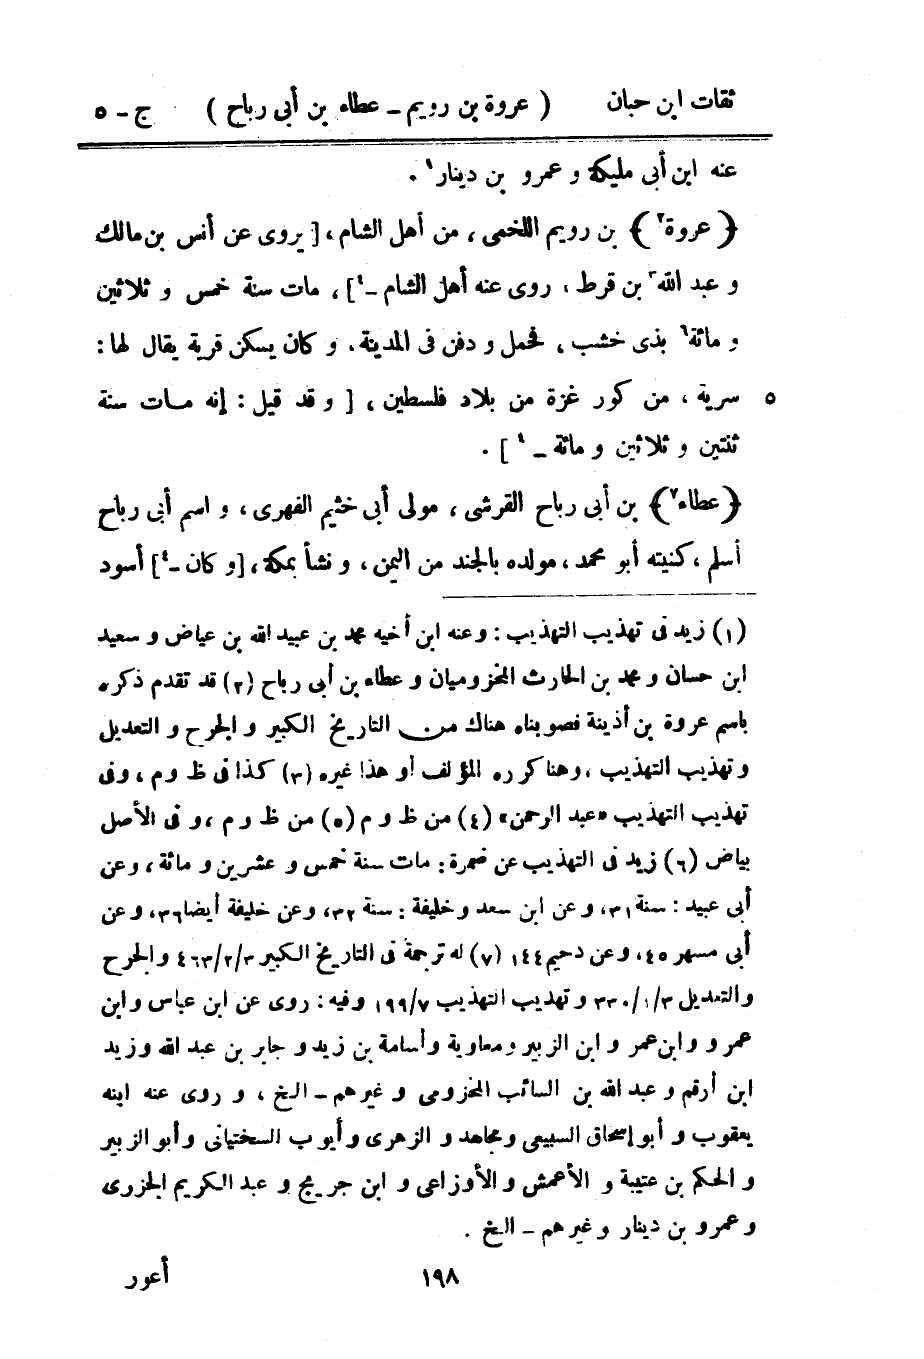 ثقات ابن حبان ( عروة بن رويم ـ عطاء بن أبى رباح ) ج ـ ٥
عنه ابن أبى مليكة و عمرو بن دينار١ .
﴿ عروة٢ ﴾ بن رويم اللخمى ، من أهل الشام ، [ يروى عن أنس بن مالك
و عبد الله٣ بن قرط ، روى عنه أهل الشام ـ٤ ] ، مات سنة خمس و ثلاثين
و مائة٦ بذى خشب ، فحمل و دفن فى المدينة ، و كان يسكن قرية يقال لها :
٥ سرية ، من كور غزة من بلاد فلسطين ، [ و قد قيل : إنه مات سنة
ثنتين و ثلاثين و مائة ـ٤ ] .
﴿ عطاء٧ ﴾ بن أبى رباح القرشى ، مولى أبى خثيم الفهرى ، و اسم أبى رباح
أسلم ، كنيته أبو محمد ، مولده بالجند من اليمن ، و نشأ بمكة ، [ و كان ـ٤ ] أسود
(١) زيد فى تهذيب التهذيب : وعنه ابن أخيه محمد بن عبيد الله بن عياض و سعيد
ابن حسان و محمد بن الحارث المخزوميان و عطاء بن أبى رباح (٢) قد تقدم ذكره
باسم عروة بن أذينة فصوبناه هناك من التاريخ الكبير و الجرح و التعديل
و تهذيب التهذيب ، وهنا كرره المؤلف أو هذا غيره (٣) كذا فى ظ و م ، وفى
تهذيب التهذيب «عبد الرحمن» (٤) من ظ و م (٥) من ظ و م ، و فى الأصل
بياض (٦) زيد فى التهذيب عن ضمرة : مات سنة خمس و عشرين و مائة ، وعن
أبى عبيد : سنة ٣١ ، و عن ابن سعد و خليفة : سنة ٣٢ ، وعن خليفة أيضا ٣٦ ، و عن
أبى مسهر ٤٥ ، وعن دحيم ١٤٤ (٧) له ترجمة فى التاريخ الكبير ٣/٢/٤٦٣ والجرح
والتعديل ٣/١/٣٣٠ و تهذيب التهذيب ٧/١٩٩ وفيه : روى عن ابن عباس و ابن
عمرو و ابن عمر و ابن الزبير و معاوية و أسامة بن زيد و جابر بن عبد الله و زيد
ابن أرقم و عبد الله بن السائب المخزومى و غيرهم ـ الخ ، و روى عنه ابنه
يعقوب و أبو إسحاق السبيعى و مجاهد و الزهرى و أيوب السختيانى و أبو الزبير
و الحكم بن عتيبة و الأعمش و الأوزاعى و ابن جريج و عبد الكريم الجزرى
و عمرو بن دينار و غيرهم ـ الخ .
١٩٨ أعور